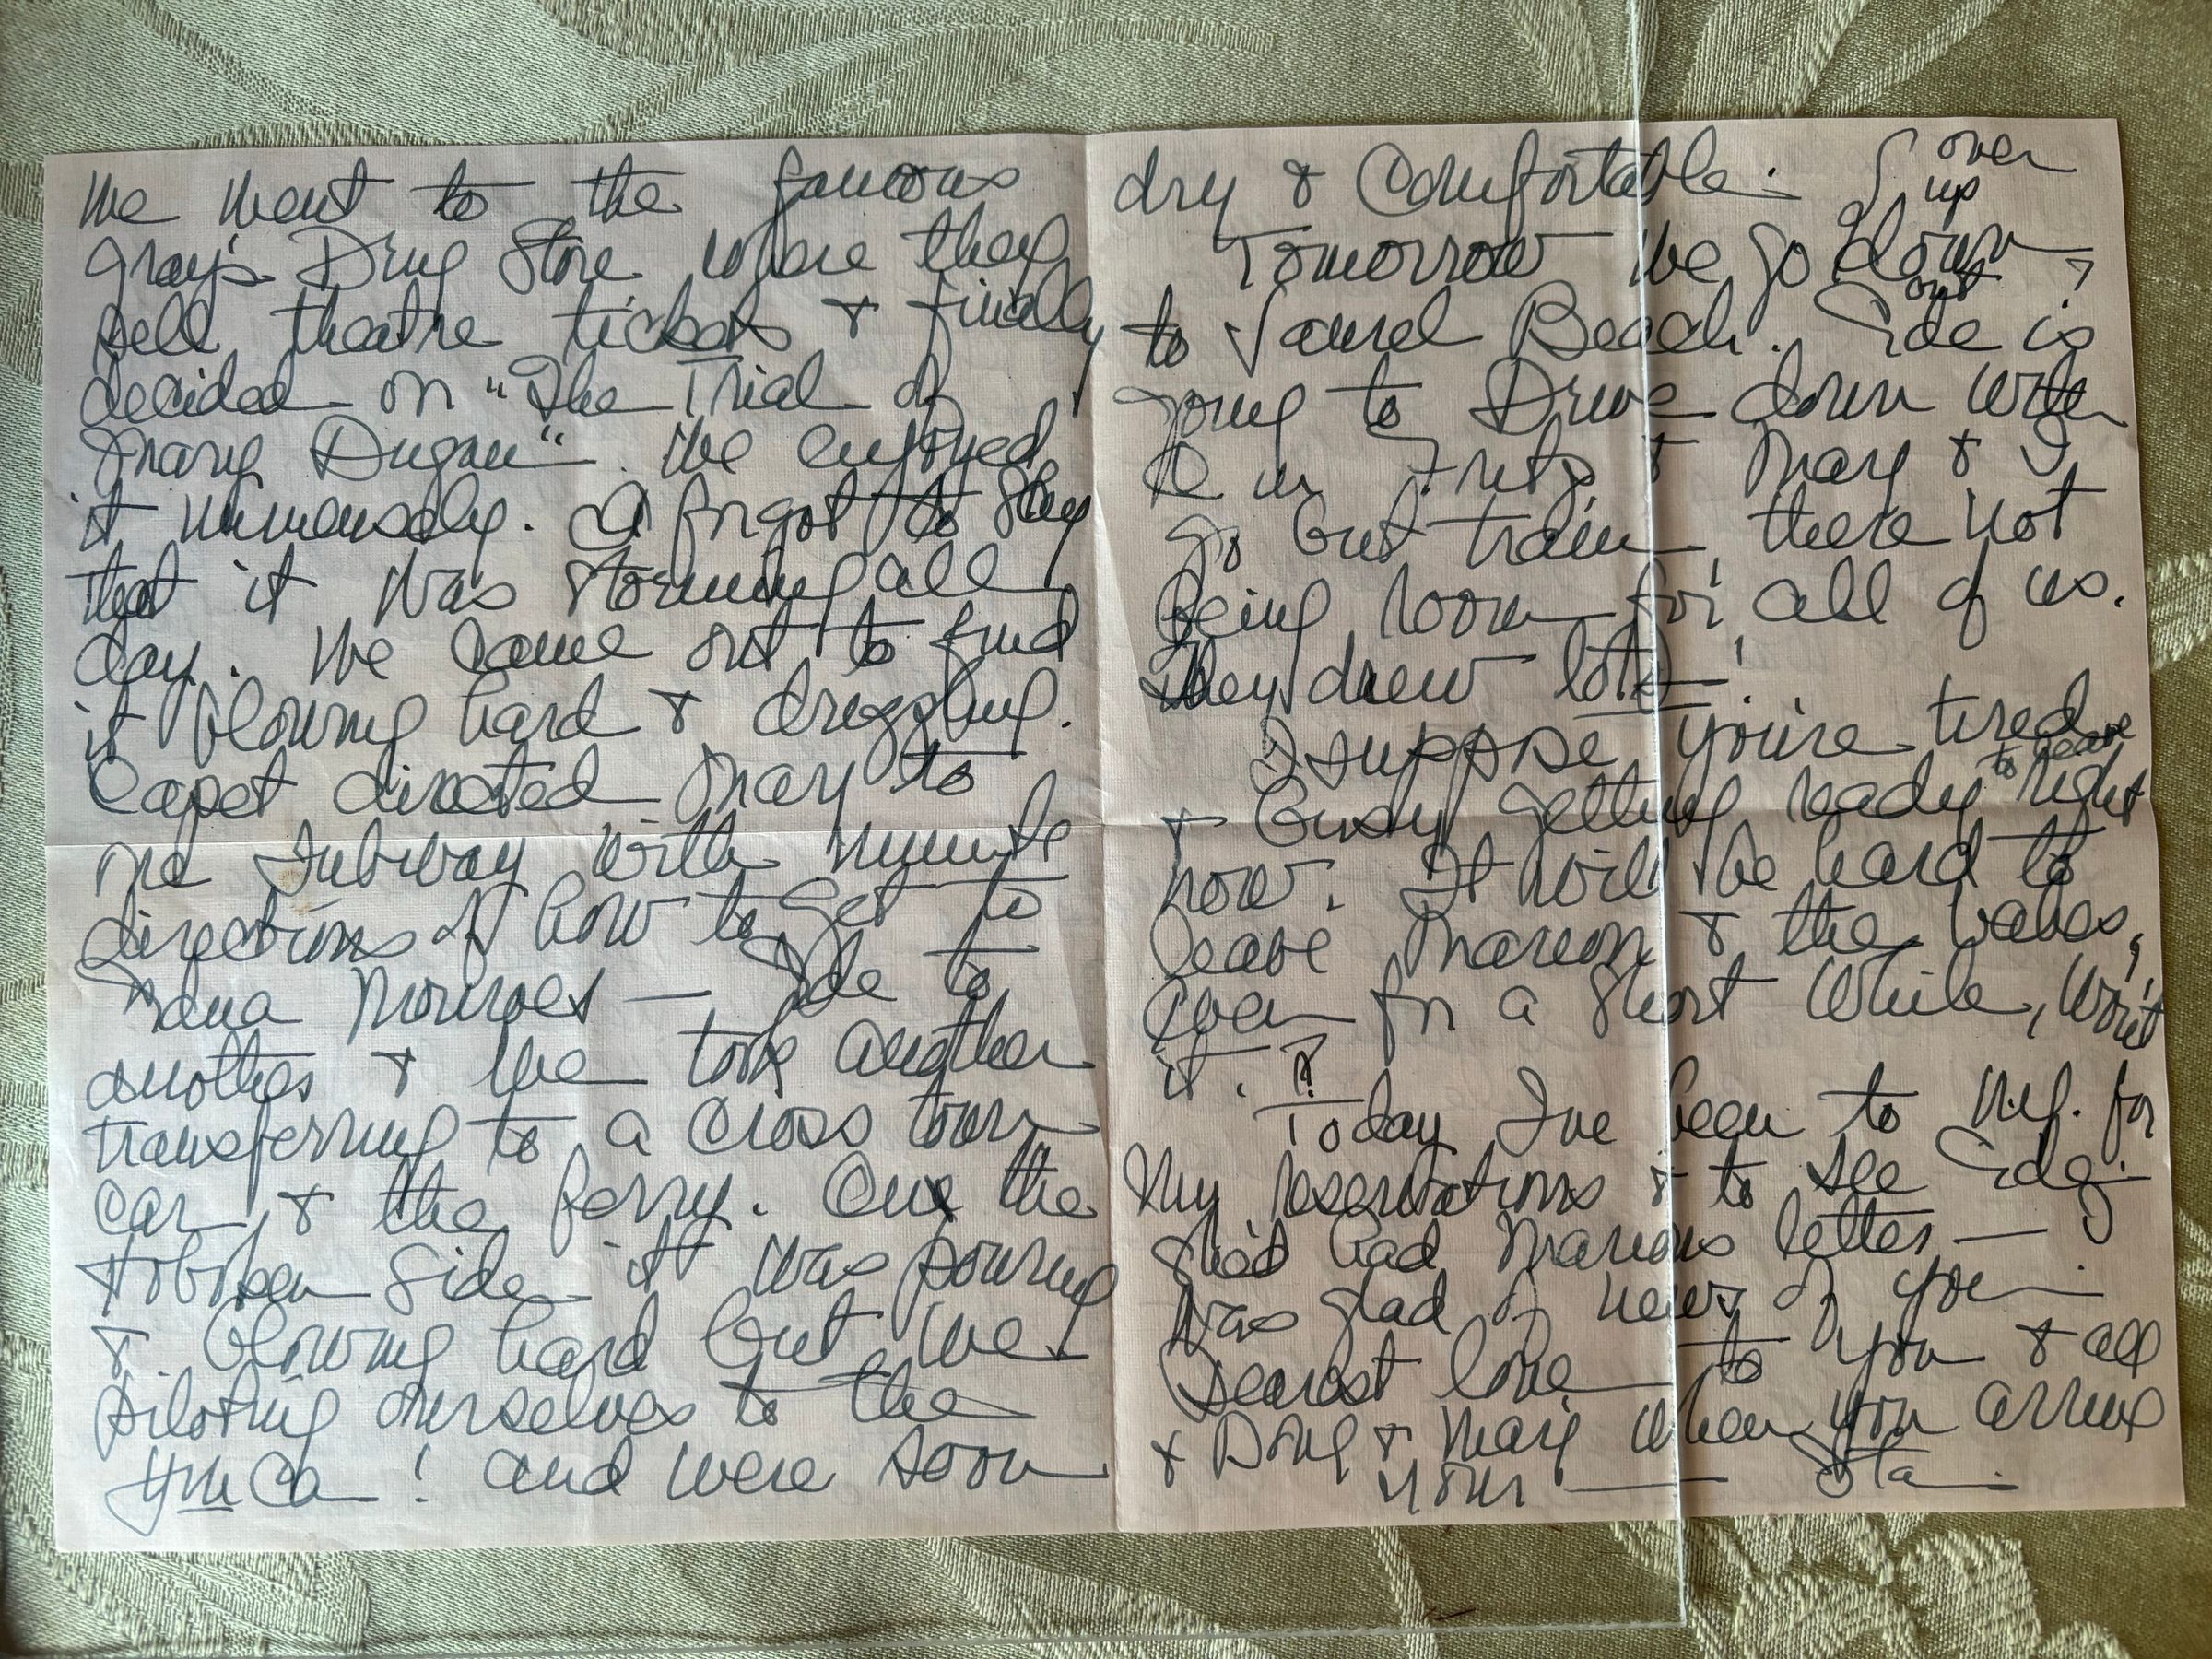 We went to the famous
Gray's Drug Store where they
sell theatre tickets & finally
decided on "The Trial of
Mary Dugan". We enjoyed
it immensely. I forgot to say
that it was storming all
day. We came out to find
it blowing hard & drizzling.
Capet directed Mary to
one Subway with minute
directions of how to get to
Monroes — Ede to
another & we took another
transferring to a cross town
car, & the ferry. One the
Hoboken side it was pouring
& blowing hard but we
piloting ourselves to the
YMCa! and were soon
dry & Comfortable. over
up
Tomorrow we go down
out
to Laurel Beach. Ede is
going to Drive down with
& Mary & I
go but train, there not
being room for all of us.
They drew lots!
I suppose you're tired
to leave
& busy getting ready right
now. It will be hard to
leave Marion & the babes,
even for a short while, won't
it.?
Today I've been to N.Y. for
my reservations & to see Ede.
She'd had Marions letter — I
was glad of news of you.
Dearest love to you & all
& Doug & Mary when you arrive
Your — Sta.